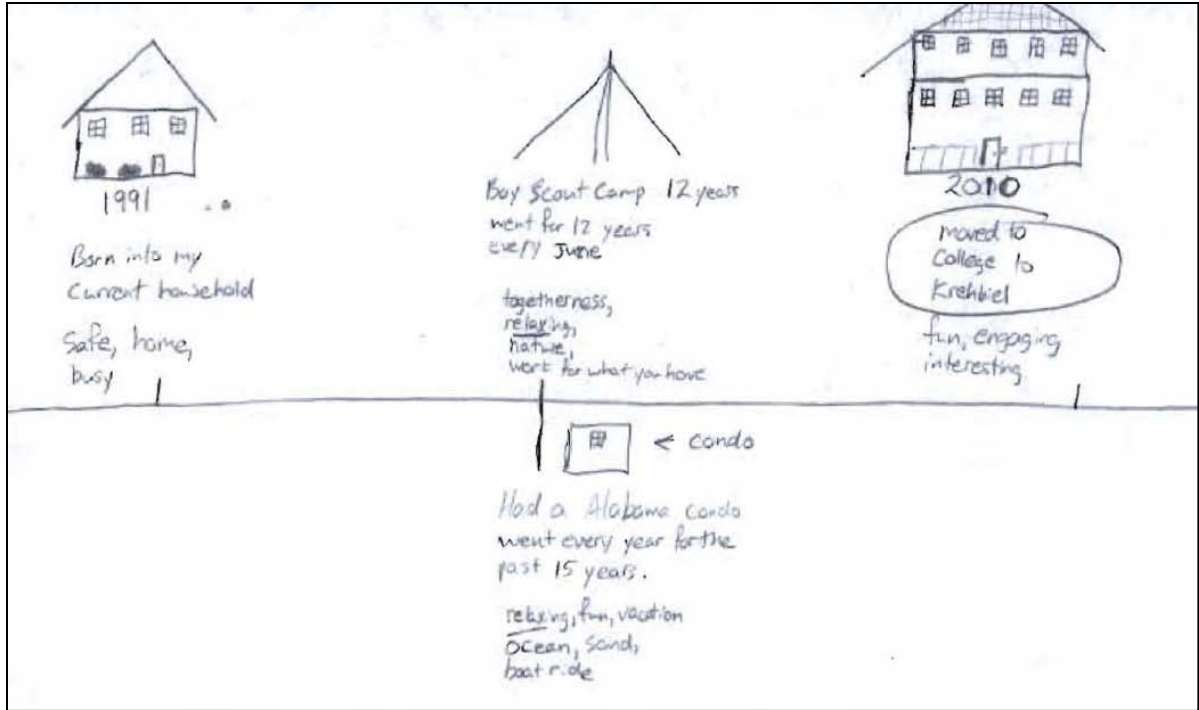 1991
Born into my
Current household
Safe, home,
busy
Boy Scout Camp 12 years
went for 12 years
every June
togetherness,
relaxing,
nature,
work for what you have
2010
moved to
College to
Krehbiel
fun, engaging
interesting
< condo
Had a Alabama condo
went every year for the
past 15 years.
relaxing, fun, vacation
ocean, sand,
boat ride